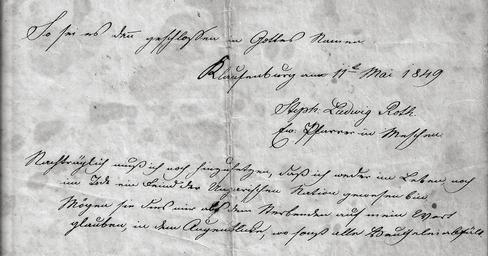 So sei es denn geschlossen in Gottes Namen
Klausenburg am 11t Mai 1849
Steph. Ludwig Roth
Ev. Pfarrer in Meschen
Nachträglich muß ich noch hinzusetzen, daß ich weder im Leben noch
im Tode ein Feind der Ungarischen Nation gewesen bin
Mögen sie dies mir als dem Sterbenden auf mein Wort
glauben, in dem Augenblicke, wo sonst alle Heuchelei abfällt